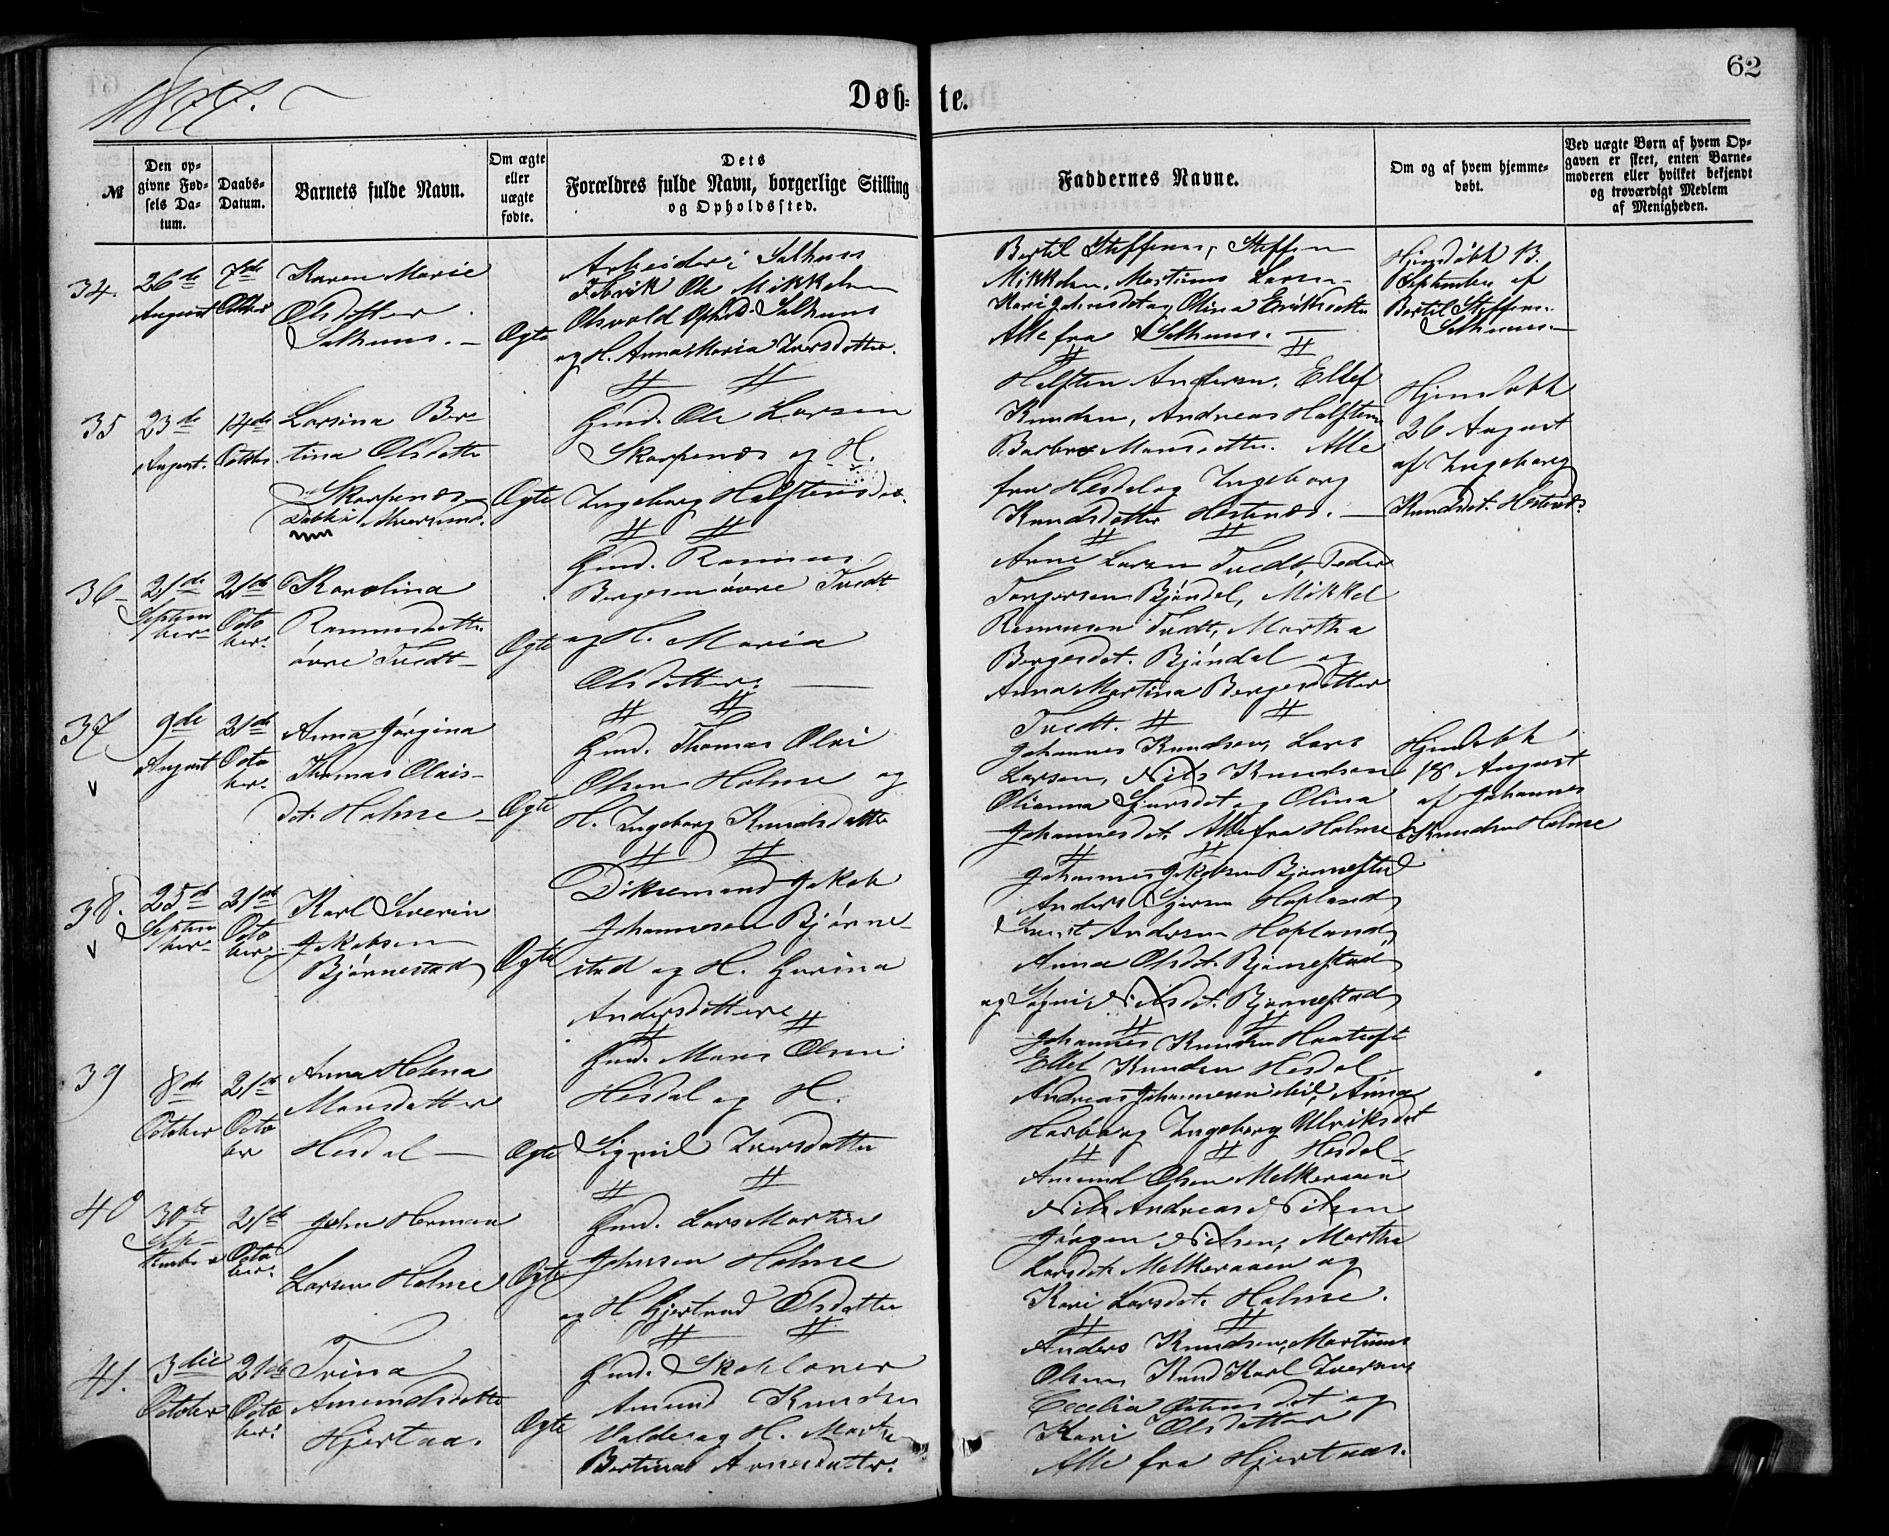 62
1877.
Døb= te.
№
Den op=
givne Fød=
sels Da=
tum.
Daabs=
Datum.
Barnets fulde Navn.
Om ægte
eller
uægte
fødte.
Dets
Forældres fulde Navn, borgerlige Stilling
og Opholdssted.
Faddernes Navne.
Om og af hvem hjemme=
døbt.
Ved uægte Børn af hvem Op=
gaven er skeet, enten Barne=
moderen eller hvilket bekjendt
og troværdigt Medlem
af Menigheden.
34.
26de
August
7de
Karen Marie
Olsdatter
Salhuus. —
Ægte
Arbeider i Salhuus
Fabrik Ole Mikkelsen
Olsvold Salhuus
og H. Anna Maria Iversdatter.
Bertil Steffensen, Steffen
Mikkelsen, Martinus Larsen
Olina Eriksdatter
Alle fra Salhuus. —
Hjemdøbt
September af
Bertil Steffensen
Salhuus. —
35
23de
August.
14de
October
Larsina Ber=
tina Olsdatter
Skarpenæs
Døbt i
Ægte
Gmd. Ole Larsen
Skarpenæs og H.
Ingeborg Halfstensdat.
Halfsten Andersen, Ellef
Knudsen, Andreas Halfstens.
Barbro Monsdatter. Alle
fra Hesdal og Ingeborg
Knudsdatter Hestenæs. —
Hjemdøbt
26 August
af Ingeborg
Knudsdt. Hestenæs
36
21de
Septem
ber
21de
Octo
ber.
Karolina
Rasmusdatter
øvre Tvedt
Ægte
Gmd. Rasmus
Bergesen øvre Tvedt
og H. Maria
Olsdatter. —
Arne Larsen Tvedt, Peder
Torgersen Bjøndal, Mikkel
Rasmusen Tvedt, Martha
Bergesdat. Bjøndal og
Anna Martina Bergesdatter
Tvedt.
37
9de
August
21de
Octo
ber.
Anna Jørgina
Thomas Olais=
dt. Holme —
Ægte
Gmd. Thomas Olai
Olsen Holme og
H. Ingeborg Knudsdatter
Johannes Knudsen, Lars
Larsen, Nils Knudsen
Olianna og Olina
Johannesdt. Alle fra Holme
Hjemdøbt
18 August
af Johannes
Knudsen Holme
38.
25de
Septem
ber
21de
Octo
ber
Karl Severin
Jakobsen
Bjørnestad
Ægte
Jakob
Johannesen Bjørne=
stad og H. Gurina
Andersdatter
Johannes Jakobsen Bjørnestad
Anders Hopland
Andersen Hopland
Anna Olsdt. Bjørnestad
og Nilsdt. Bjørnestad
39
8de
October
21de
Octo
ber
Anna Helena
Monsdatter
Hesdal —
Ægte
Gmd. Mons Olsen
Hesdal og H.
Iversdatter
Johannes Knudsen
Ellef Knudsen Hesdal
Andreas Johannesen Anna
Ingeborg Ulriksdt
Hesdal
40
30te
Sep=
tember
21de
Octo
ber.
John Herman
Larsen Holme
Ægte
Gmd. Lars Martin
Johnsen Holme
og H. Gjertrud Olsdatter
Amund Olsen Melkeraaen
Nils Andreas Nilsen
Jørgen Nilsen, Martha
Larsdt. Melkeraaen og
Kari Larsdt. Holme.
41.
3die
October
21de
Octo
ber.
Trina
Amundsdatter
Hjertaas.
Ægte
Gmd. Skolelærer
Amund Knudsen
og H. Marte
Bertina Arnesdatter.
Anders Knudsen, Martinus
Olsen, Knud Karl Iversen,
Cecelia dt. og
Kari Olsdatter
Alle fra Hjertaas.